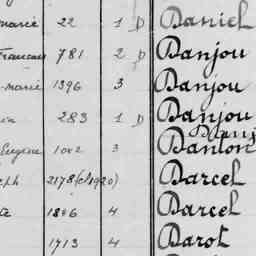 marie 22 1 D Daniel
Francois 781 2 D Danjou
marie 1396 3 Danjou
283 1 D Danjou
Eugène 1002 3 Danton
eph 2178 (cl 1920) Darcel
1806 4 Darcel
1713 4 Darot